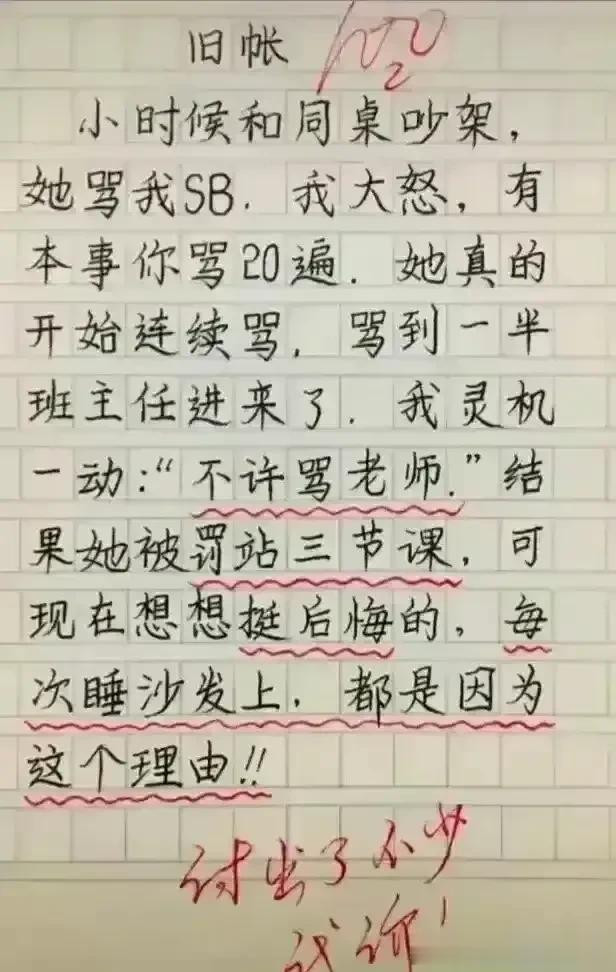 旧帐 100
小时候和同桌吵架，
她骂我SB. 我大怒，有
本事你骂20遍. 她真的
开始连续骂，骂到一半
班主任进来了. 我灵机
一动:“不许骂老师.”结
果她被罚站三节课，可
现在想想挺后悔的，每
次睡沙发上，都是因为
这个理由!!
付出了不少
代价!